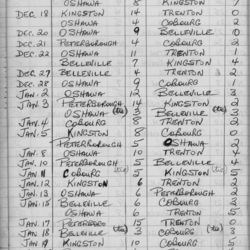 OSHAWA 8 KINGSTON
DEC. 18 KINGSTON 14 TRENTON 0
OSHAWA 4 COBOURG 2
DEC. 20 OSHAWA 9 BELLEVILLE 0
DEC. 21 PETERBOROUGH 4 COBOURG 2
DEC. 22 OSHAWA 11 TRENTON 1
BELLEVILLE 7 KINGSTON 6
DEC. 27 BELLEVILLE 4 TRENTON 2
DEC. 28 OSHAWA COBOURG 1
JAN. 2 OSHAWA 12 BELLEVILLE 3
JAN. 3 PETERBOROUGH 14 KINGSTON 2
OSHAWA (tie) 3 BELLEVILLE (tie) 3
JAN. 4 COBOURG 3 TRENTON 3
JAN. 5 KINGSTON 8 COBOURG 0
PETERBOROUGH 5 OSHAWA 2
JAN. 8 OSHAWA 10 TRENTON 4
JAN. 10 PETERBOROUGH 5 BELLEVILLE 4
JAN. 11 COBOURG 5 KINGSTON 5
JAN. 12 KINGSTON 6 TRENTON 2
JAN. 13 OSHAWA 5 PETERBORO 3
JAN. 15 BELLEVILLE 6 COBOURG 2
OSHAWA 6 TRENTON 5
JAN. 17 PETERBORO 15 TRENTON 0
JAN. 18 BELLEVILLE (tie) 3 COBOURG (tie) 3
JAN. 19 KINGSTON 10 COBOURG